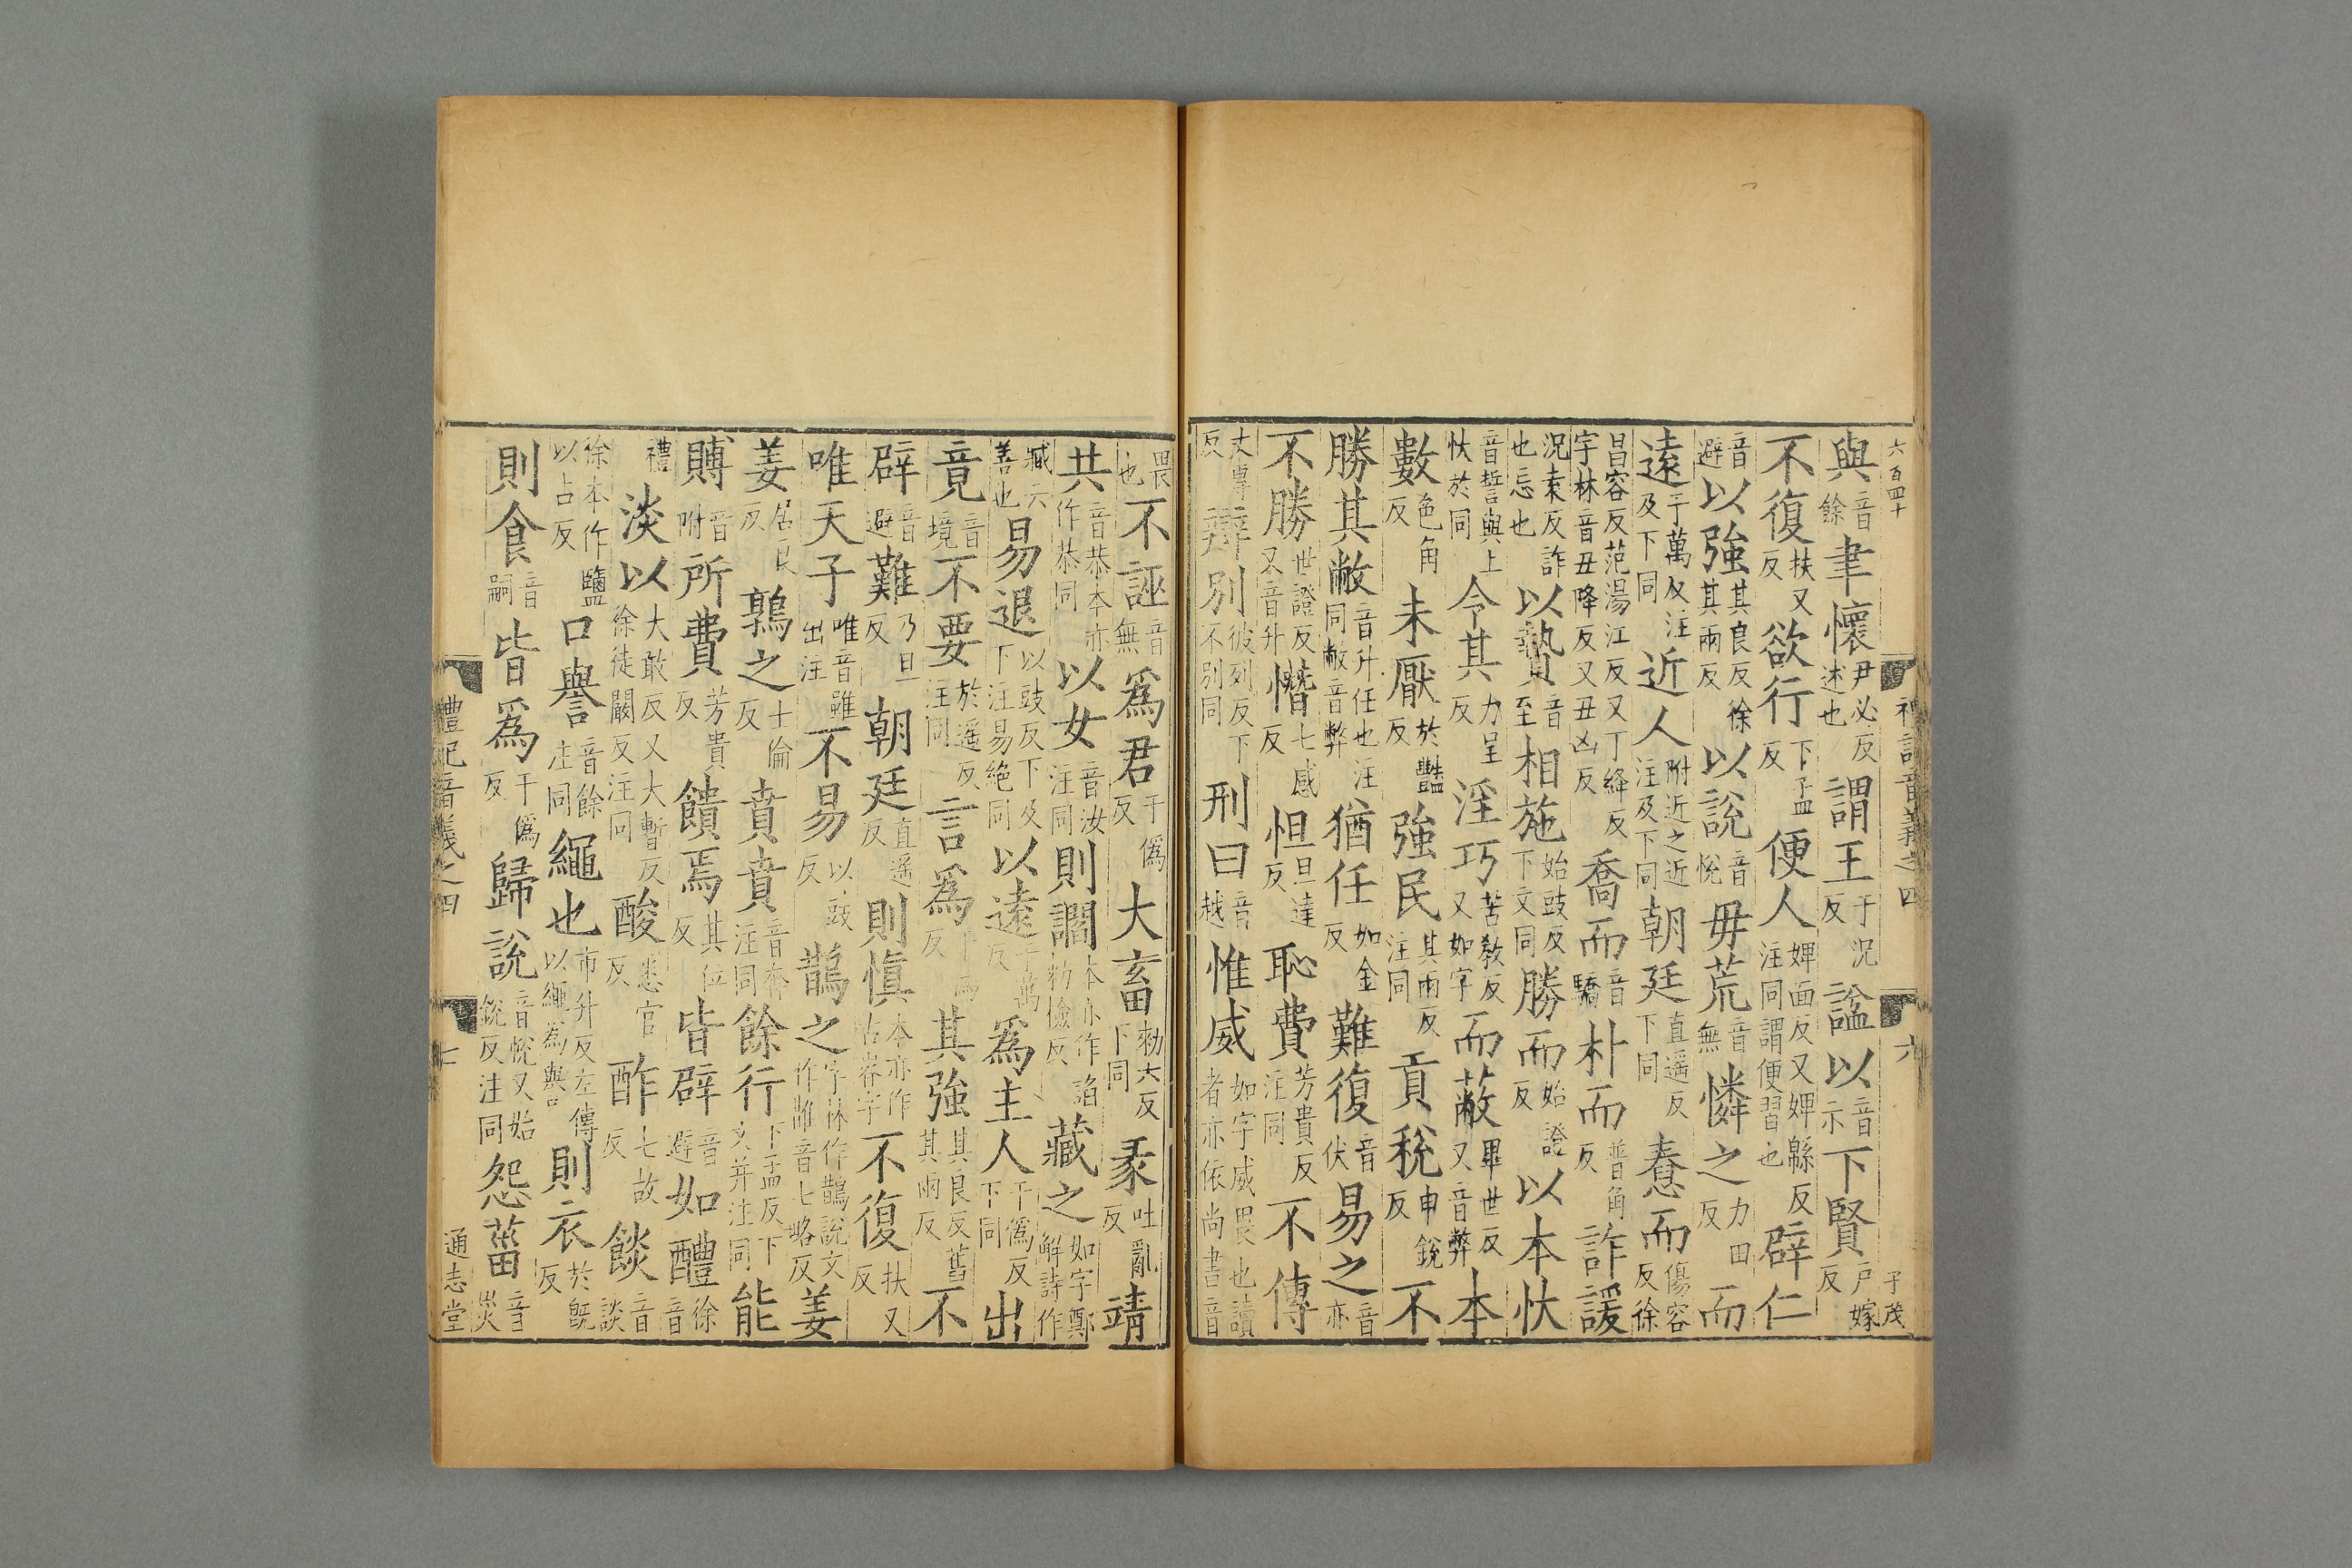 六百四十 禮記音義之四 六 子茂
與音餘聿懷尹必反述也謂王于況反諡以音示下賢戶嫁反
不復扶又反欲行下孟反便人婢面反又婢緜反注同謂便習也辟仁
音避以強其良反徐其兩反以說音悅毋荒音無憐之力田反而
遠于萬反注及下同近人附近之近注及下同朝廷直遥反下同惷而傷容反徐
昌容反范湯江反又丁絳反字林音丑降反又丑凶反喬而音驕朴而普角反詐諼
況袁反詐也忘也以贄音至相施始豉反下文同勝而始證反以本忕
音誓與上忕於同令其力呈反淫巧苦教反又如字而蔽畢世反又音弊本
數色角反未厭於豔反強民其兩反注同貢稅申銳反不
勝其敝音升任也注同敝音弊猶任如金反難復音伏易之音亦
不勝世證反又音升憯七感反怛旦達反恥費芳貴反注同不傳
丈專反辨別彼列反下不別同刑曰音越惟威如字威畏也讀者亦依尚書音
畏也不誣音無爲君于僞反大畜勑六反下同彖吐亂反靖
共音恭本亦作恭同以女音汝注同則讇本亦作諂勑儉反藏之如字鄭解詩作
臧云善也易退以豉反下及下注易絶同以遠于萬反爲主人于僞反下同出
竟音境不要於遥反注同言爲于僞反其強其良反舊其兩反不
辟音避難乃旦反朝廷直遥反則慎本亦作古眘字不復扶又反
唯天子唯音雖出注不易以豉反鵲之字林作䧿說文作𨿡音七略反姜
姜居良反鶉之士倫反賁賁音奔注同餘行下孟反下文并注同能
賻音附所費芳貴反饋焉其位反皆辟音避如醴徐音
禮淡以大敢反又大暫反徐徒闞反注同酸悉官反酢七故反餤音談
徐本作鹽以占反口譽音餘注同繩也市升反左傳以繩爲譽則衣於既反
則食音嗣皆爲于僞反歸說音悅又始銳反注同怨菑音災
禮記音義之四 七 通志堂